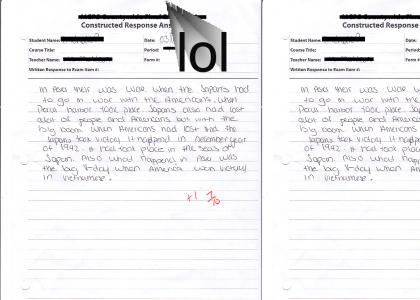 Constructed Response Ans
lol
Student Name:
Date: 03/
Course Title:
Period:
Teacher Name:
Form #:
Written Response to Exam Item #:
In Asia their was WOR. When the Japans had
to go in wor with the Americans. When
Pearl harbor took place Japans also had lost
alot of people and Americans but with the
big boom when Americans had lost and the
Japans took victory it happend in december year
of 1942. it had took place in the seas of
Japan. Also what happend in Asia was
the big V-day when America won victory
in vietnamese.
+1
Constructed Res
Student Name:
Course Title:
Teacher Name:
Written Response to Exam Item #:
In Asia their was WOR. W
to go in wor with the
Pearl harbor took place
alot of people and Americ
big boom when Americans
Japans took victory it happ
of 1942. it had took plac
Japan. Also what happ
the big V-day when Am
in vietnamese.